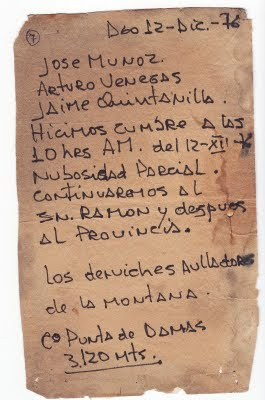 7
Dgo 12-Dic.-76
JOSE MUÑOZ.
ARTURO VENEGAS
JAIME QUINTANILLA.
HICIMOS CUMBRE A LAS
10 hrs AM. del 12-XII-76
NUBOSIDAD PARCIAL.
CONTINUAREMOS AL
SN. RAMON y despues
AL PROVINCIA.
Los derviches Aulladores
de LA MONTANA.
Cº PUNTA de DAMAS
3.120 Mts.